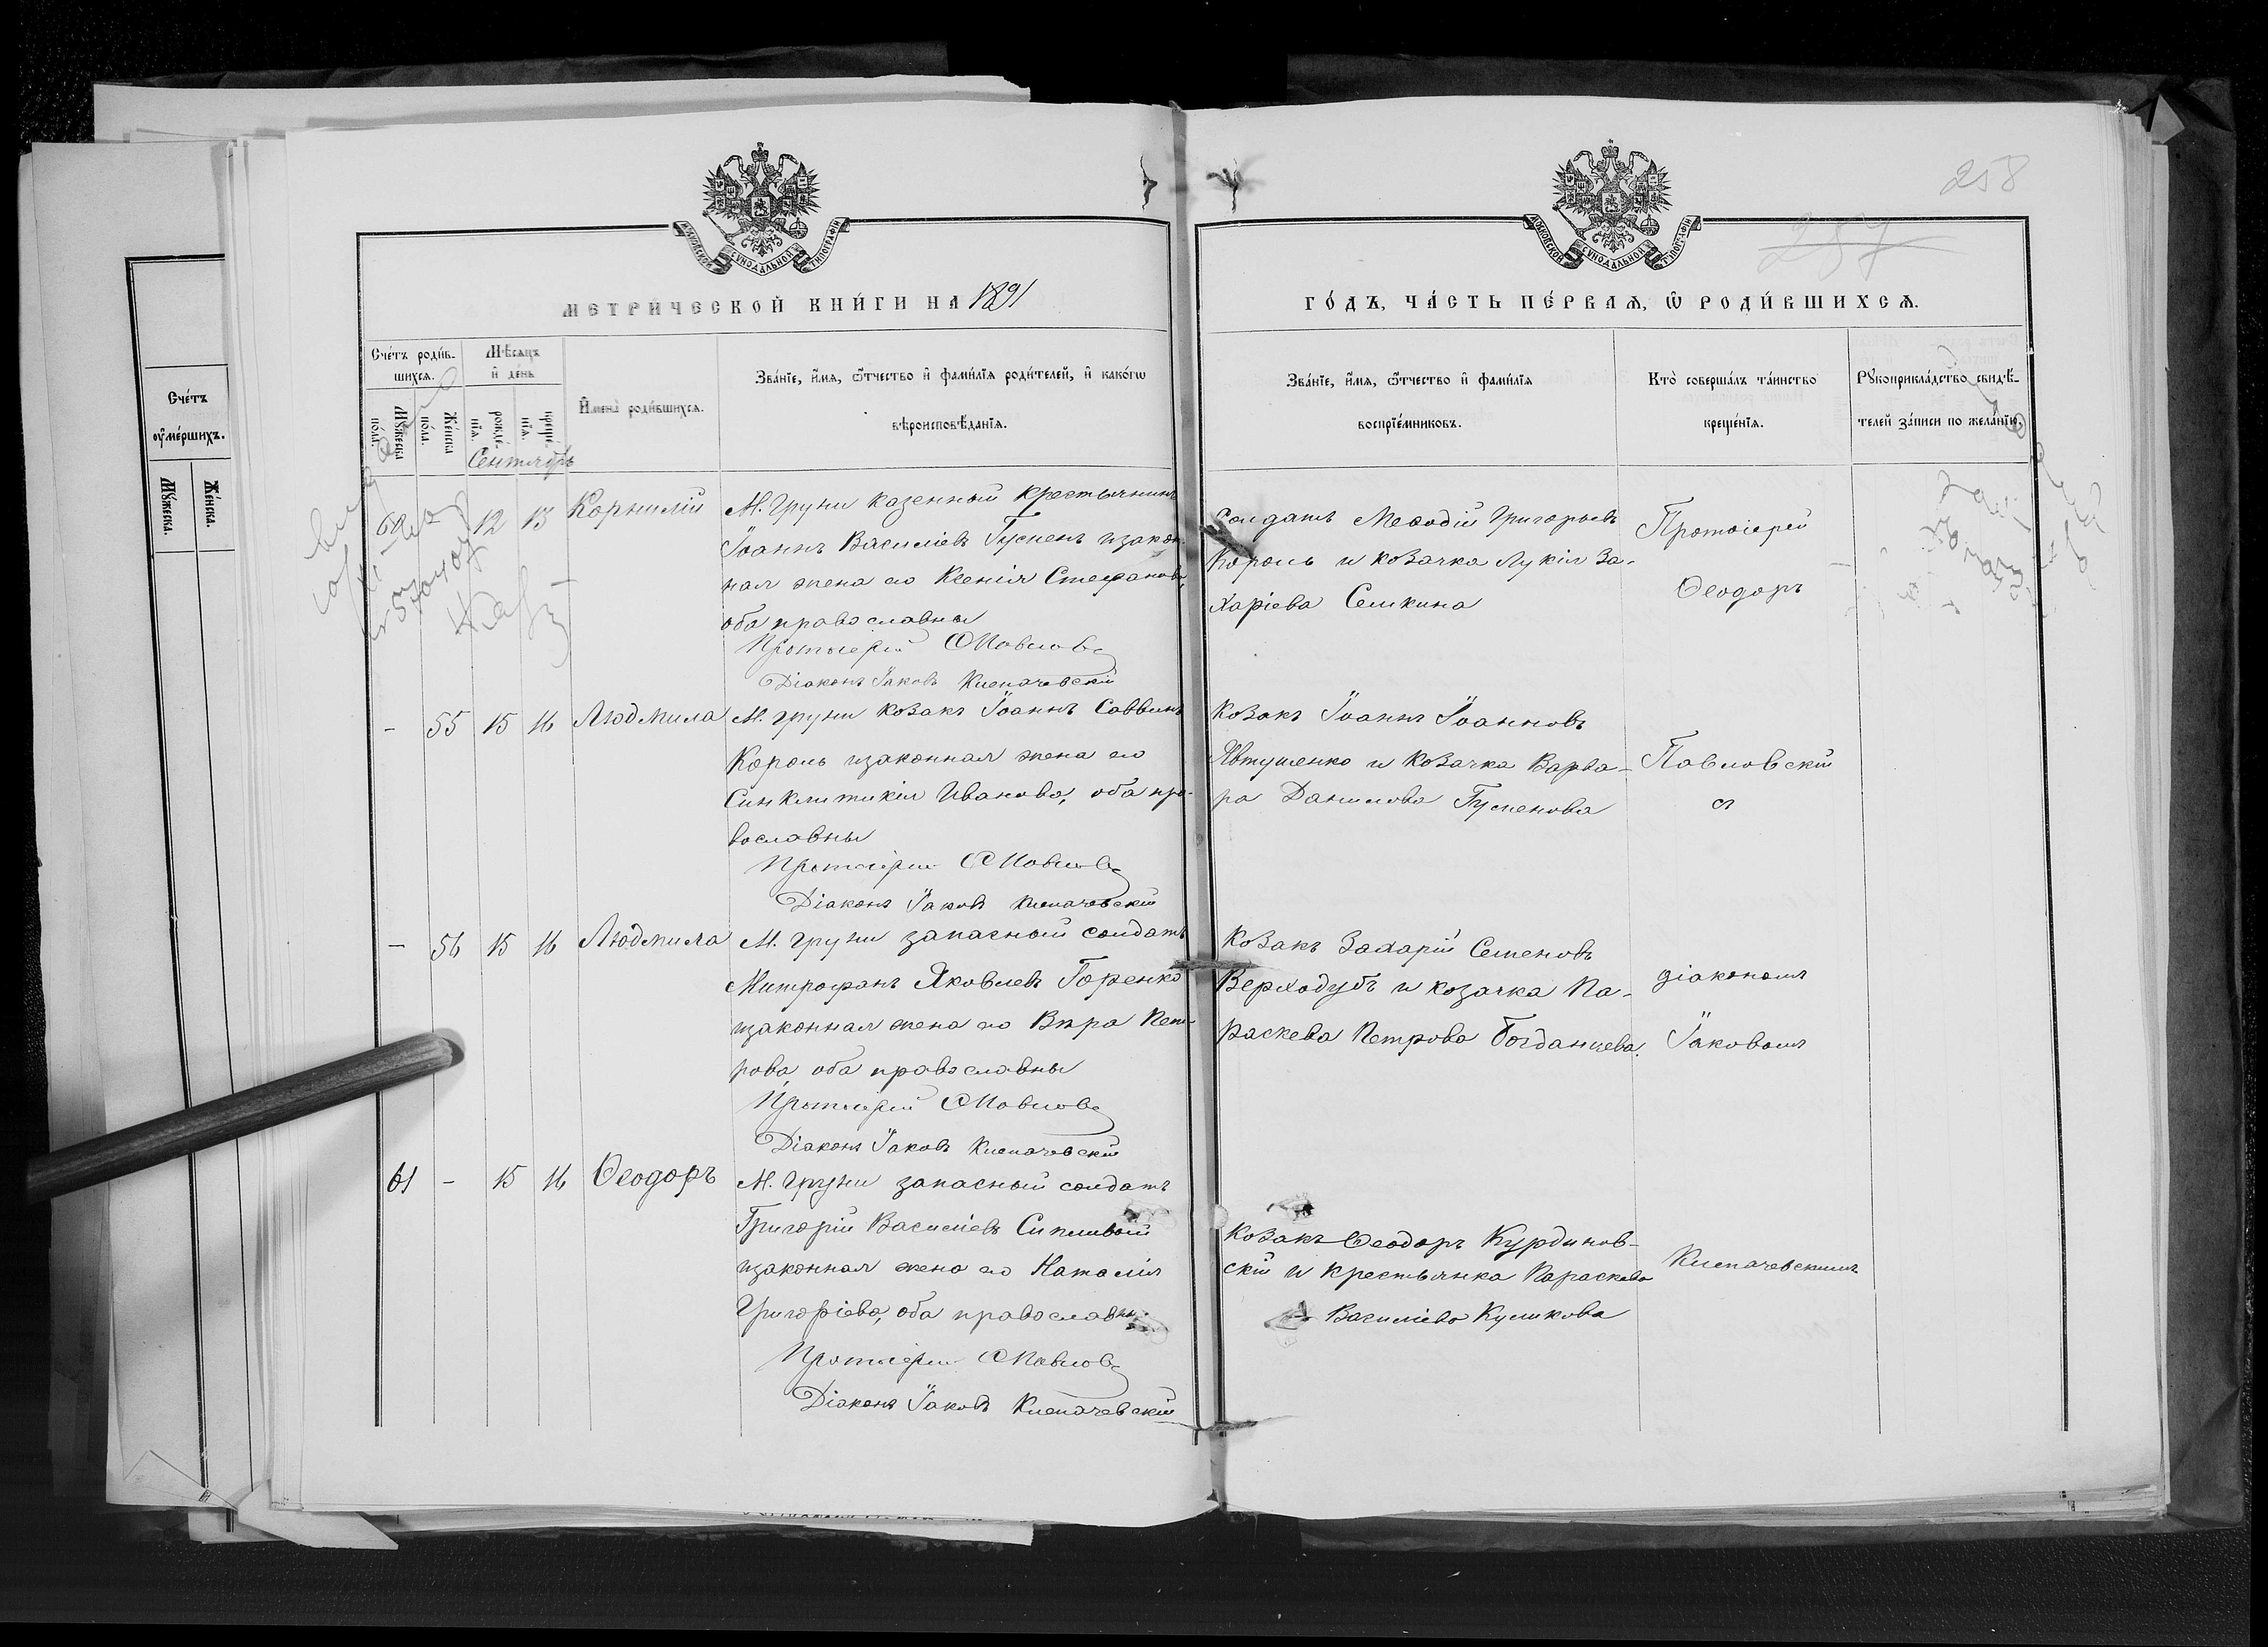 258
257
МОСКОВСКОЙ СѴНОДАЛЬНОЙ ТИПОГРАФІИ
МОСКОВСКОЙ СѴНОДАЛЬНОЙ ТИПОГРАФІИ
МЕТРИ́ЧЕСКОЙ КНИ́ГИ НА 1891
ГО́ДЪ, ЧА́СТЬ ПЕ́РВАѦ, Ѡ РОДИ́ВШИХСѦ.
Сче́тъ
ᲂу҆ме́ршихъ.
Мꙋ́жеска.
Же́нска.
Сче́тъ роди́в-
шихсѧ.
Мꙋ́жеска по́ла.
Же́нска по́ла.
Мѣ́сѧцъ
и҆ де́нь
рожде́нїѧ.
креще́нїѧ.
И҆мена̀ роди́вшихсѧ.
Зва́нїе, и҆́мѧ, ѻ҆́тчество и҆ фами́лїѧ роди́телей, и҆ како́гѡ
вѣроисповѣ́данїѧ.
Зва́нїе, и҆́мѧ, ѻ҆́тчество и҆ фами́лїѧ
воспрїе́мниковъ.
Кто̀ соверша́лъ та́инство
креще́нїѧ.
Рꙋкоприкла́дство свидѣ́-
телей за́писи по жела́нїю.
Сентябрь
60 - 12 13 Корнилій М. Груни казенный крестьянинъ
Іоаннъ Василіевъ Гуспенъ изакон-
ная жена его Ксенія Стефанова,
оба православны
Протоіерей Ѳ Павлов
Діаконъ Іаковъ Клепачевскій
Солдатъ Меѳодій Григорьевъ
Король и козачка Лукія За-
харіева Семкина
Протоіерей
Ѳеодоръ
- 55 15 16 Людмила М. груни козакъ Іоаннъ Саввинъ
Король изаконная жена его
Синклитикія Иванова, оба пра-
вославны
Протоіерей Ѳ Павлов
Діаконъ Іаковъ Клепачевскій
Козакъ Іоаннъ Іоанновъ
Явтушенко и козачка Варва-
ра Данилова Гуспенова
Павловскій
съ
- 56 15 16 Людмила М. груни запасный солдатъ
Митрофанъ Яковлевъ Горенко
изаконная жена его Вѣра Пет-
рова, оба православны
Протоіерей Ѳ Павлов
Діаконъ Іаковъ Клепачевскій
Козакъ Захарій Семеновъ
Верходубъ и козачка Па-
раскева Петрова Богданцева.
діакономъ
Іаковомъ
61 - 15 16 Ѳеодоръ М. Груни запасный солдатъ
Григорій Василіевъ Сипливый
изаконная жена его Наталія
Григоріева, оба православны
Протоіерей Ѳ Павлов
Діаконъ Іаковъ Клепачевскій
Козакъ Ѳеодоръ Курдинов-
скій и крестьянка Параскева
Василіева Куликова
Клепачевскимъ